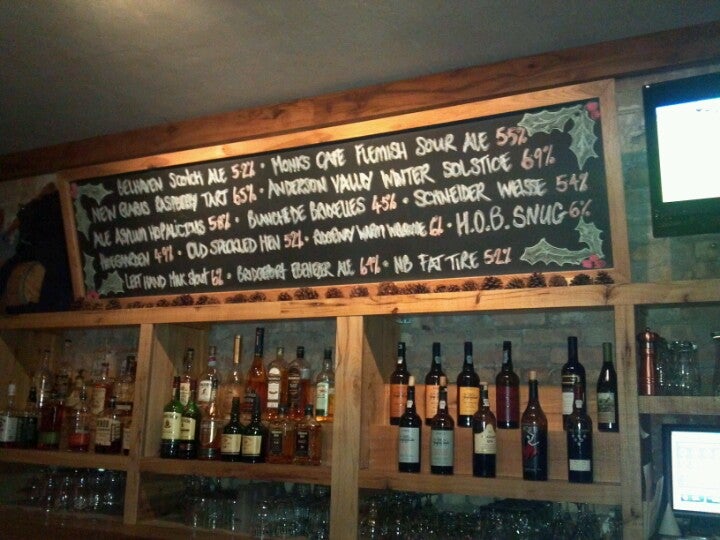 BELHAVEN SCOTCH ALE 5.2% • MONK'S CAFE FLEMISH SOUR ALE 5.5%
NEW GLARUS RASPBERRY TART 6.5% • ANDERSON VALLEY WINTER SOLSTICE 6.9%
ALE ASYLUM HOPALICIOUS 5.8% • BLANCHE DE BRUXELLES 4.5% • SCHNEIDER WEISSE 5.4%
HOEGAARDEN 4.9% • OLD SPECKLED HEN 5.2% • RIDGEWAY WARM WELCOME 6% • H.O.B. SNUG 6%
LEFT HAND MILK STOUT 6% • BRIDGEPORT EBENEZER ALE 6.4% • NB FAT TIRE 5.2%